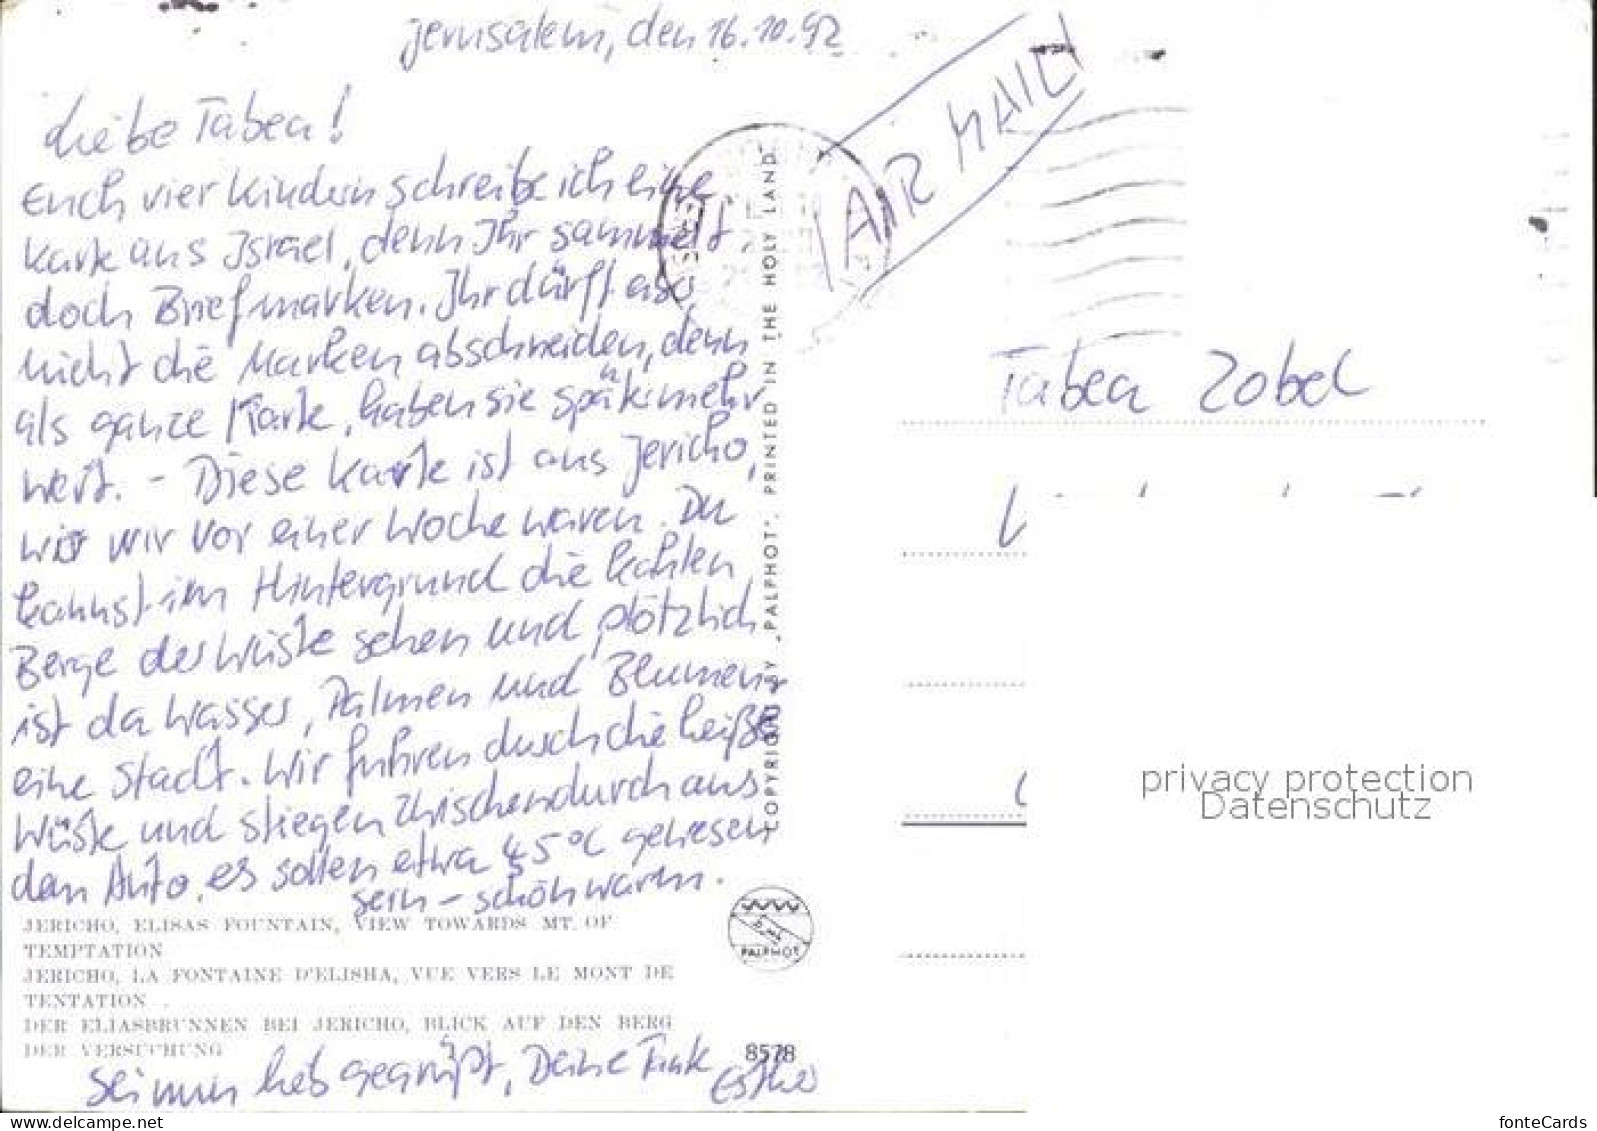 Jerusalem, den 16.10.92
AIR MAIL
Liebe Tabea!
Euch vier Kindern schreibe ich eine
Karte aus Israel, denn Ihr sammelt
doch Briefmarken. Ihr dürft also
nicht die Marken abschneiden, denn
als ganze Karte, haben sie später mehr
Wert. - Diese Karte ist aus Jericho,
wo wir vor einer Woche waren. Du
kannst im Hintergrund die kahlen
Berge der Wüste sehen und plötzlich
ist da Wasser, Palmen und Blumen,
eine Stadt. Wir fuhren durch die heiße
Wüste und stiegen zwischendurch aus
dem Auto, es sollen etwa 45°C gewesen
sein - schön warm.
COPYRIGHT BY „PALPHOT". PRINTED IN THE HOLY LAND
Tabea Zobel
privacy protection
Datenschutz
PALPHOT
JERICHO, ELISAS FOUNTAIN, VIEW TOWARDS MT. OF
TEMPTATION
JERICHO, LA FONTAINE D'ELISHA, VUE VERS LE MONT DE
TENTATION
DER ELIASBRUNNEN BEI JERICHO, BLICK AUF DEN BERG
DER VERSUCHUNG
8578
Sei nun lieb gegrüßt, Deine Tante Esther
www.delcampe.net
fonteCards